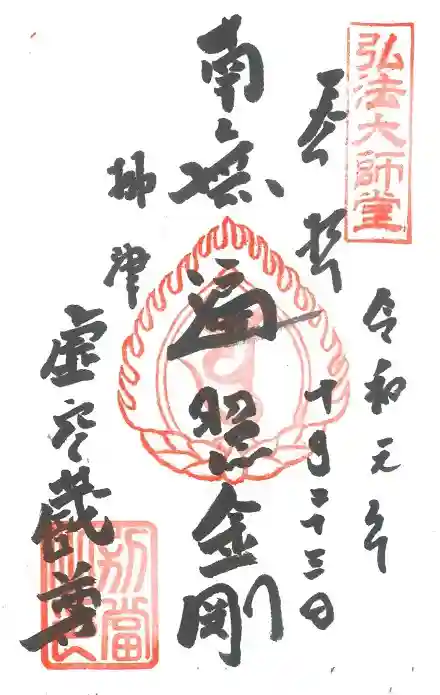 弘法大師堂
奉拝
令和元年
十月二十三日
南無遍照金剛
柳津
虚空蔵尊
別當